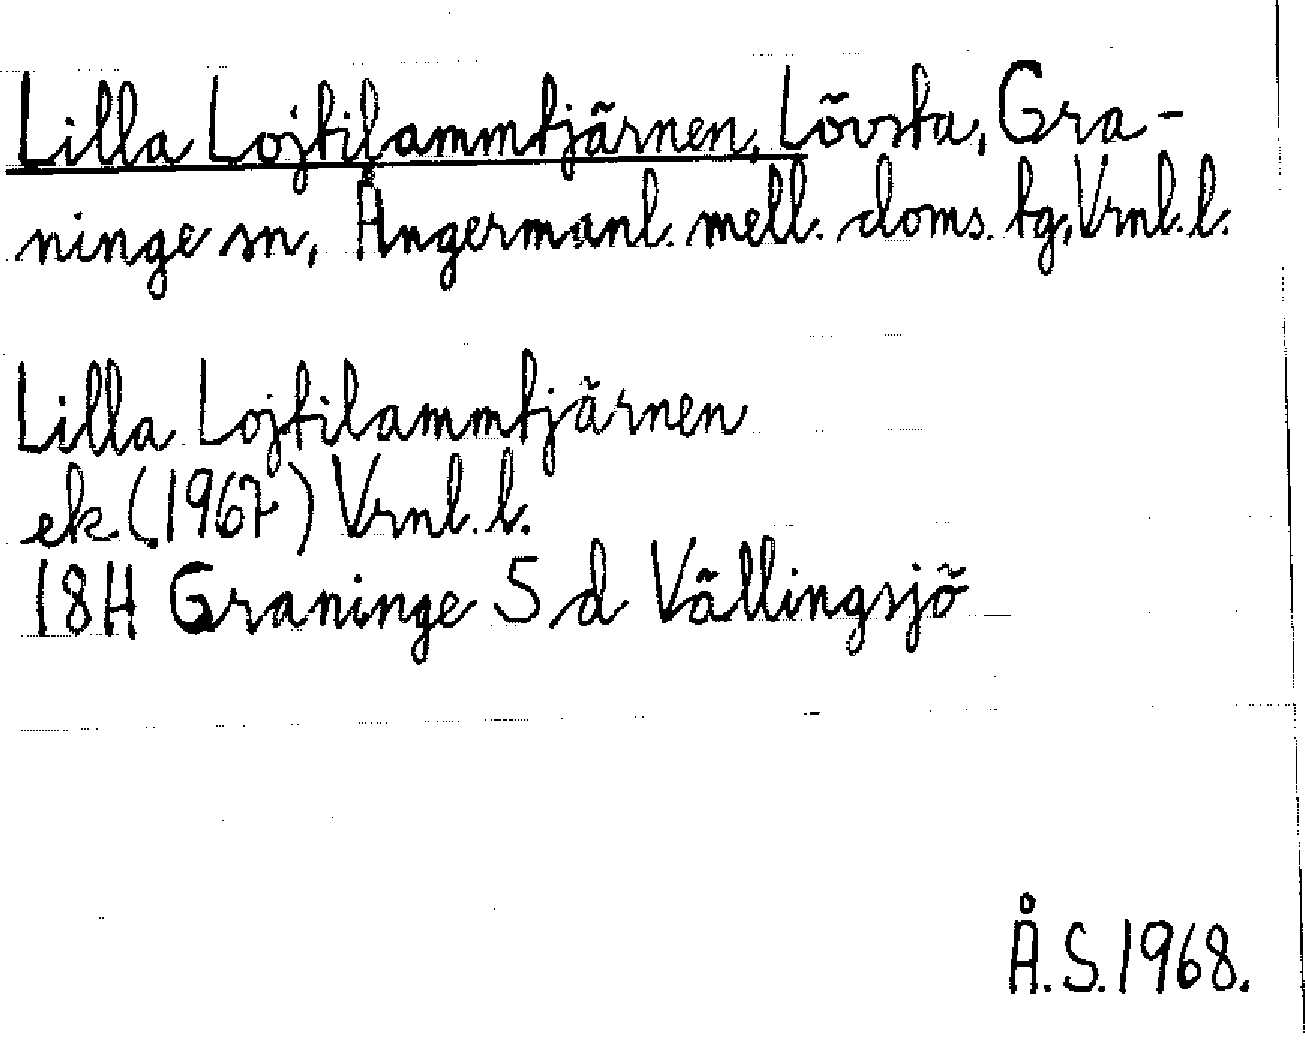 Lilla Lojtilammtjärnen, Lövsta, Gra-
ninge sn, Ångermanl. mell. doms. tg, Vrnl. l.
Lilla Lojtilammtjärnen
ek. (1967) Vrnl. l.
18H Graninge S d Vällingsjö
Å.S. 1968.